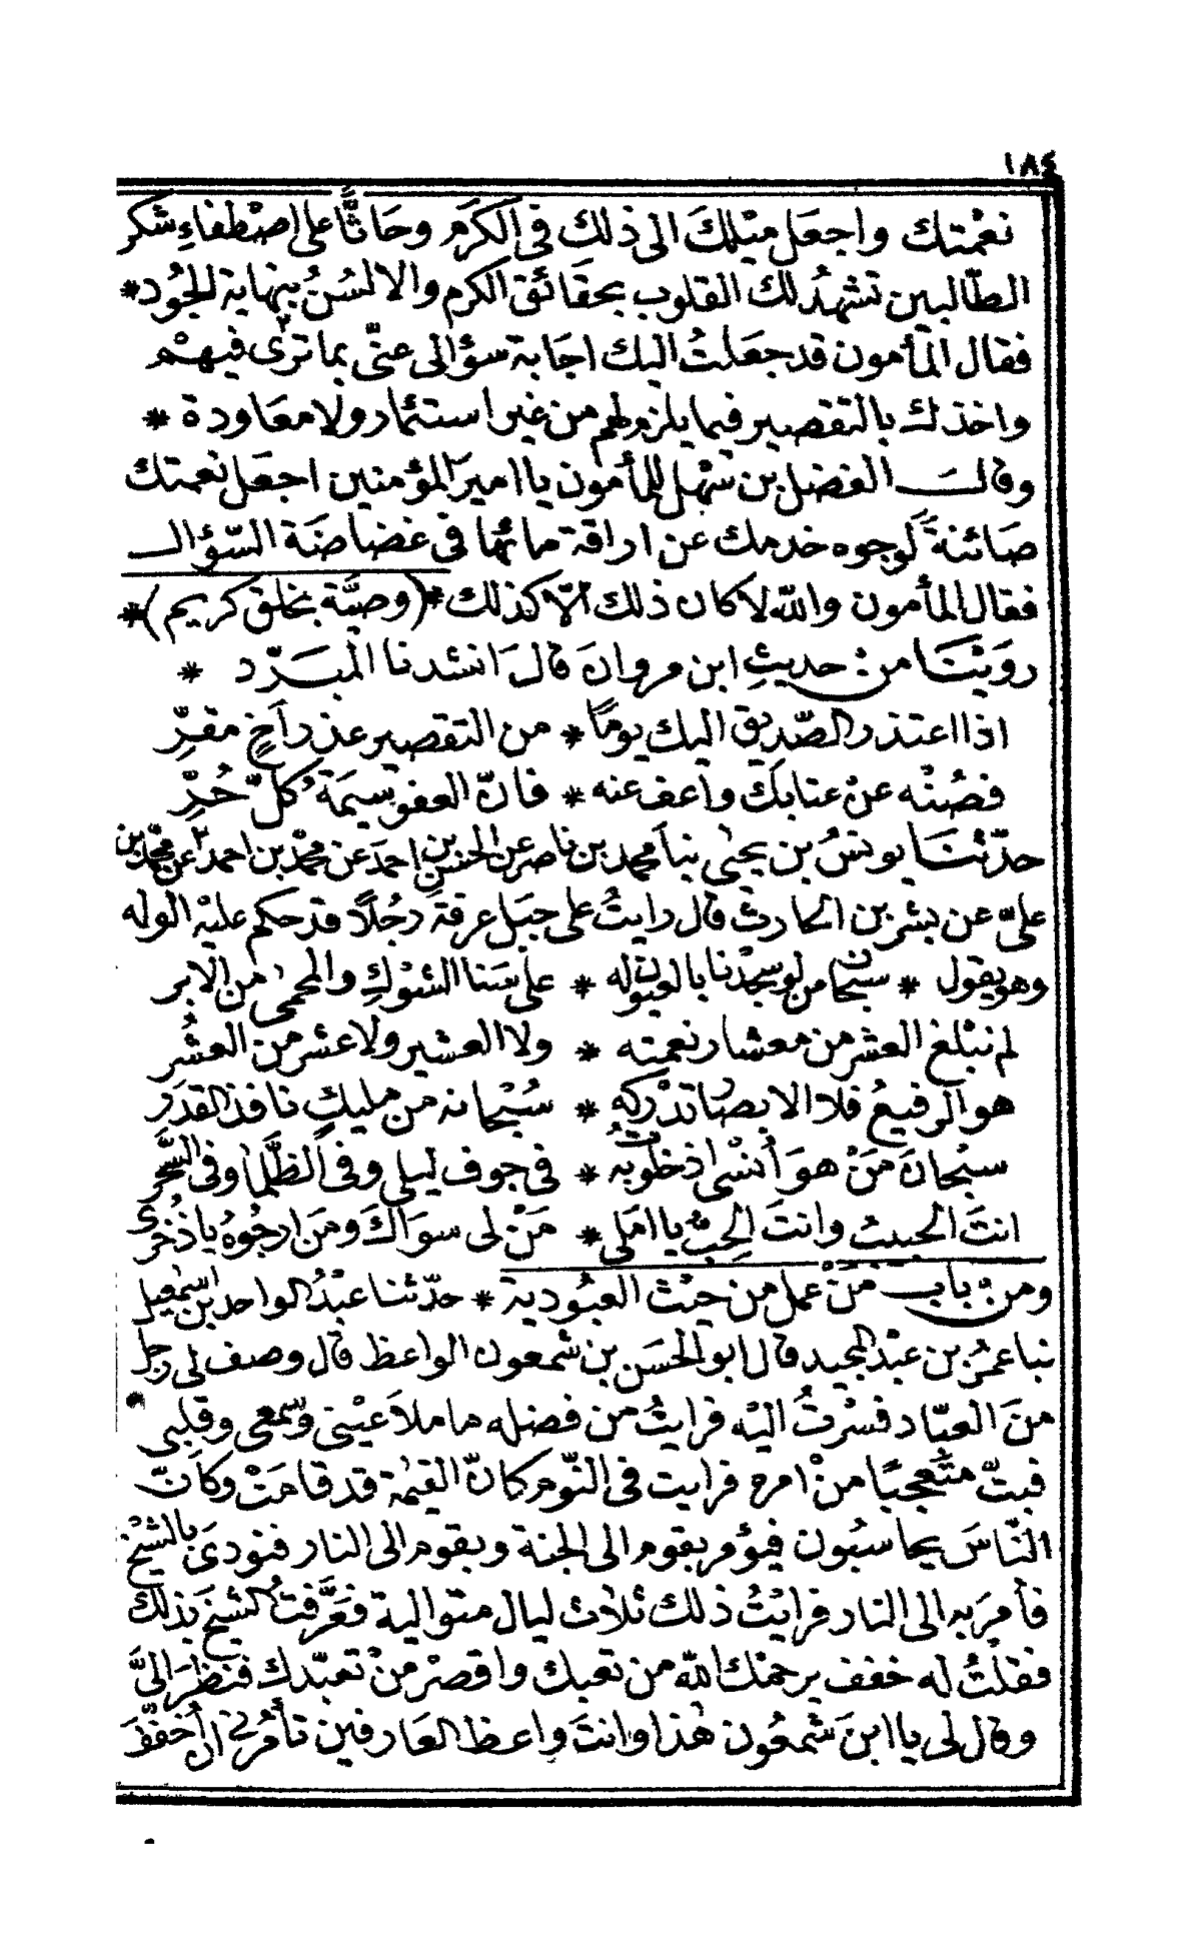 ١٨٤
نعمتك واجعل ميلك الى ذلك فى الكرم وحاثًّا على اصطفاء شكر
الطّالبين تشهدُ لك القلوب بحقائق الكرم والالسُنُ بنهاية الجُود *
فقال المأمون قد جعلتُ اليك اجابة سؤالى عنّى بما ترى فيهم
واخذك بالتقصير فيما يلزم لهم من غير استئمار ولا معاودة *
وقال الفضل بن سهل للمأمون يا امير المؤمنين اجعل نعمتك
صائنةً لوجوه خدمك عن اراقة مائها فى غضاضة السّؤال
فقال المأمون والله لا كان ذلك الّا كذلك *(وصيّة بخلق كريم)*
روَيْنَا من حديثِ ابن مروان قال انشدنا المبرّد *
اذا اعتذر الصّديق اليك يومًا * من التقصير عذر أخٍ مقرِّ
فصُنْه عن عتابك واعف عنه * فانّ العفو سيمَة كلّ حُرِّ
حدّثنَا يونسُ بن يحيى نبا محمد بن ناصر عن الحسن بن احمد عن محمّد بن احمد عن محمد بن
علىّ عن بشر بن الحارث قال رايتُ على جبل عرفة رجُلًا قد حكم عليْه الوله
وهو يقول * سبحان من لو سجدنا بالعيون له * على سَنا الشوْكِ والمحمى من الابر
لم نبْلغ العشر من معشار نعمته * ولا العشير ولا عشر من العشُر
هو الرفيعُ فلا الابصار تدْركه * سُبْحانه من مليكٍ نافذ القدَر
سبْحانَ مَنْ هوَ أنسْى اذ خلوت به * فى جوف ليلى وفى الظَّلما وفى السَّحر
انتَ الحبيبُ وانتَ الحِبُّ يا املى * مَنْ لى سوَاكَ ومَن ارجُوهُ يا ذُخْرى
ومنْ باب منْ عمل من حيْث العبُودية * حدّثنا عبْدُ الواحد بن اسمعيل
نبا عمرُ بن عبْد المجيد قال ابو الحسَن بن شمعون الواعظ قال وصف لى رجل
منَ العبّاد فسْرتُ اليْه فرايتُ من فضله ما ملأ عيْنى وسمعى وقلبى
فبتّ متعجبًا منْ امره فرايت فى النّوم كانّ القيمة قد قامَتْ وكانّ
النّاسَ يحاسبُون فيؤمر بقوم الى الجنة وبقوم الى النار فنودىَ بالشيْخ
فأمرَ به الى النار فرايْتُ ذلك ثلاث ليال متوالية فعَرَّفتُ الشيخ بذلك
فقلتُ له خفف يرحمْك الله من تعبك واقصرْ منْ تعبّدك فنظَر الىَّ
وقال لى يا ابنَ شمعُون هٰذا وانتَ واعظ العَارفين تأمُرنى ان أخفّفَ